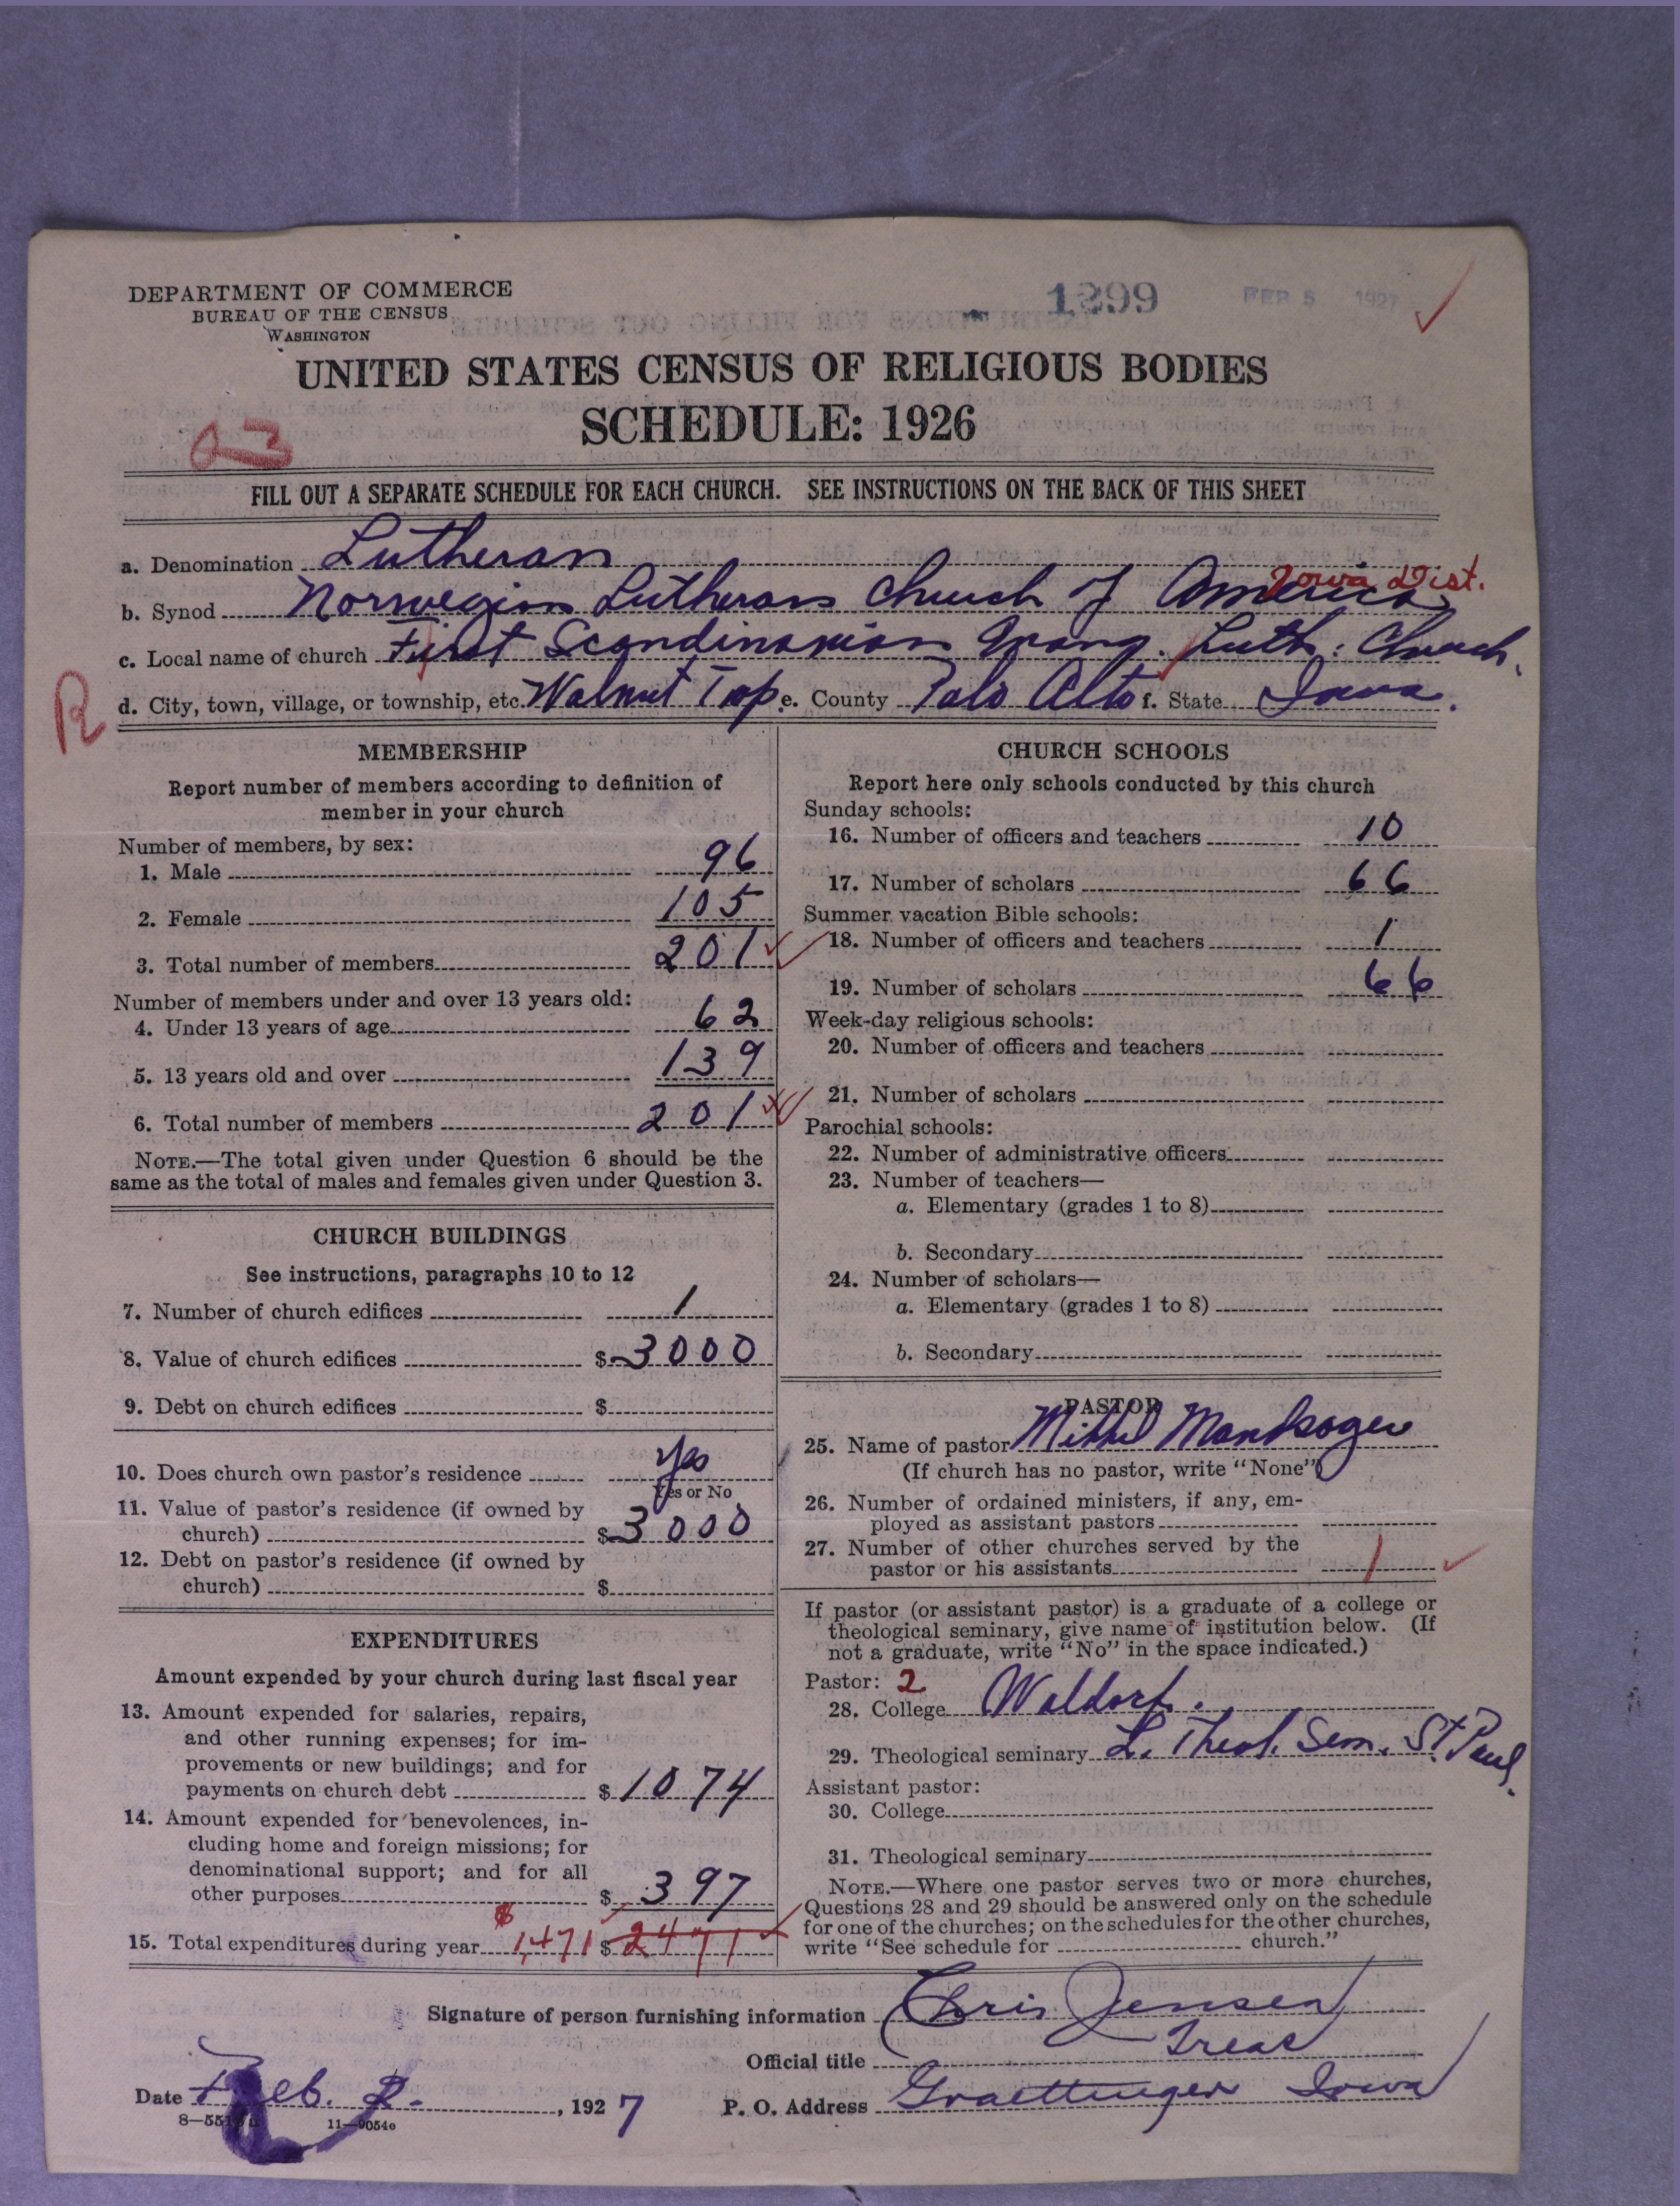 DEPARTMENT OF COMMERCE
BUREAU OF THE CENSUS
WASHINGTON
1299 FEB 5 1927
UNITED STATES CENSUS OF RELIGIOUS BODIES
SCHEDULE: 1926
FILL OUT A SEPARATE SCHEDULE FOR EACH CHURCH. SEE INSTRUCTIONS ON THE BACK OF THIS SHEET
a. Denomination Lutheran
b. Synod Norwegian Lutheran Church of America Iowa Dist.
c. Local name of church First Scandinavian Evang. Luth. Church.
R
d. City, town, village, or township, etc. Walnut Twp e. County Palo Alto f. State Iowa.
MEMBERSHIP
Report number of members according to definition of
member in your church
Number of members, by sex:
1. Male 96
2. Female 105
3. Total number of members 201
Number of members under and over 13 years old:
4. Under 13 years of age 62
5. 13 years old and over 139
6. Total number of members 201
NOTE.—The total given under Question 6 should be the
same as the total of males and females given under Question 3.
CHURCH BUILDINGS
See instructions, paragraphs 10 to 12
7. Number of church edifices 1
8. Value of church edifices $3000
9. Debt on church edifices $
10. Does church own pastor's residence yes
Yes or No
11. Value of pastor's residence (if owned by
church) $3000
12. Debt on pastor's residence (if owned by
church) $
EXPENDITURES
Amount expended by your church during last fiscal year
13. Amount expended for salaries, repairs,
and other running expenses; for im-
provements or new buildings; and for
payments on church debt $1074
14. Amount expended for benevolences, in-
cluding home and foreign missions; for
denominational support; and for all
other purposes $397
15. Total expenditures during year $1,471 $2471
CHURCH SCHOOLS
Report here only schools conducted by this church
Sunday schools:
16. Number of officers and teachers 10
17. Number of scholars 66
Summer vacation Bible schools:
18. Number of officers and teachers 1
19. Number of scholars 66
Week-day religious schools:
20. Number of officers and teachers
21. Number of scholars
Parochial schools:
22. Number of administrative officers
23. Number of teachers—
a. Elementary (grades 1 to 8)
b. Secondary
24. Number of scholars—
a. Elementary (grades 1 to 8)
b. Secondary
PASTOR
25. Name of pastor
(If church has no pastor, write "None")
26. Number of ordained ministers, if any, em-
ployed as assistant pastors
27. Number of other churches served by the
pastor or his assistants 1
If pastor (or assistant pastor) is a graduate of a college or
theological seminary, give name of institution below. (If
not a graduate, write "No" in the space indicated.)
Pastor: 2
28. College Waldorf.
29. Theological seminary L. Theol. Sem. St. Paul.
Assistant pastor:
30. College
31. Theological seminary
NOTE.—Where one pastor serves two or more churches,
Questions 28 and 29 should be answered only on the schedule
for one of the churches; on the schedules for the other churches,
write "See schedule for church."
Signature of person furnishing information Chris Jensen
Official title Treas
Date Feb. 2. , 1927 P. O. Address Graettinger Iowa
11—9054e